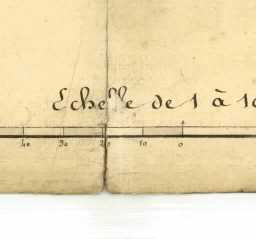 Echelle de 1 à 10
40 30 20 10 0